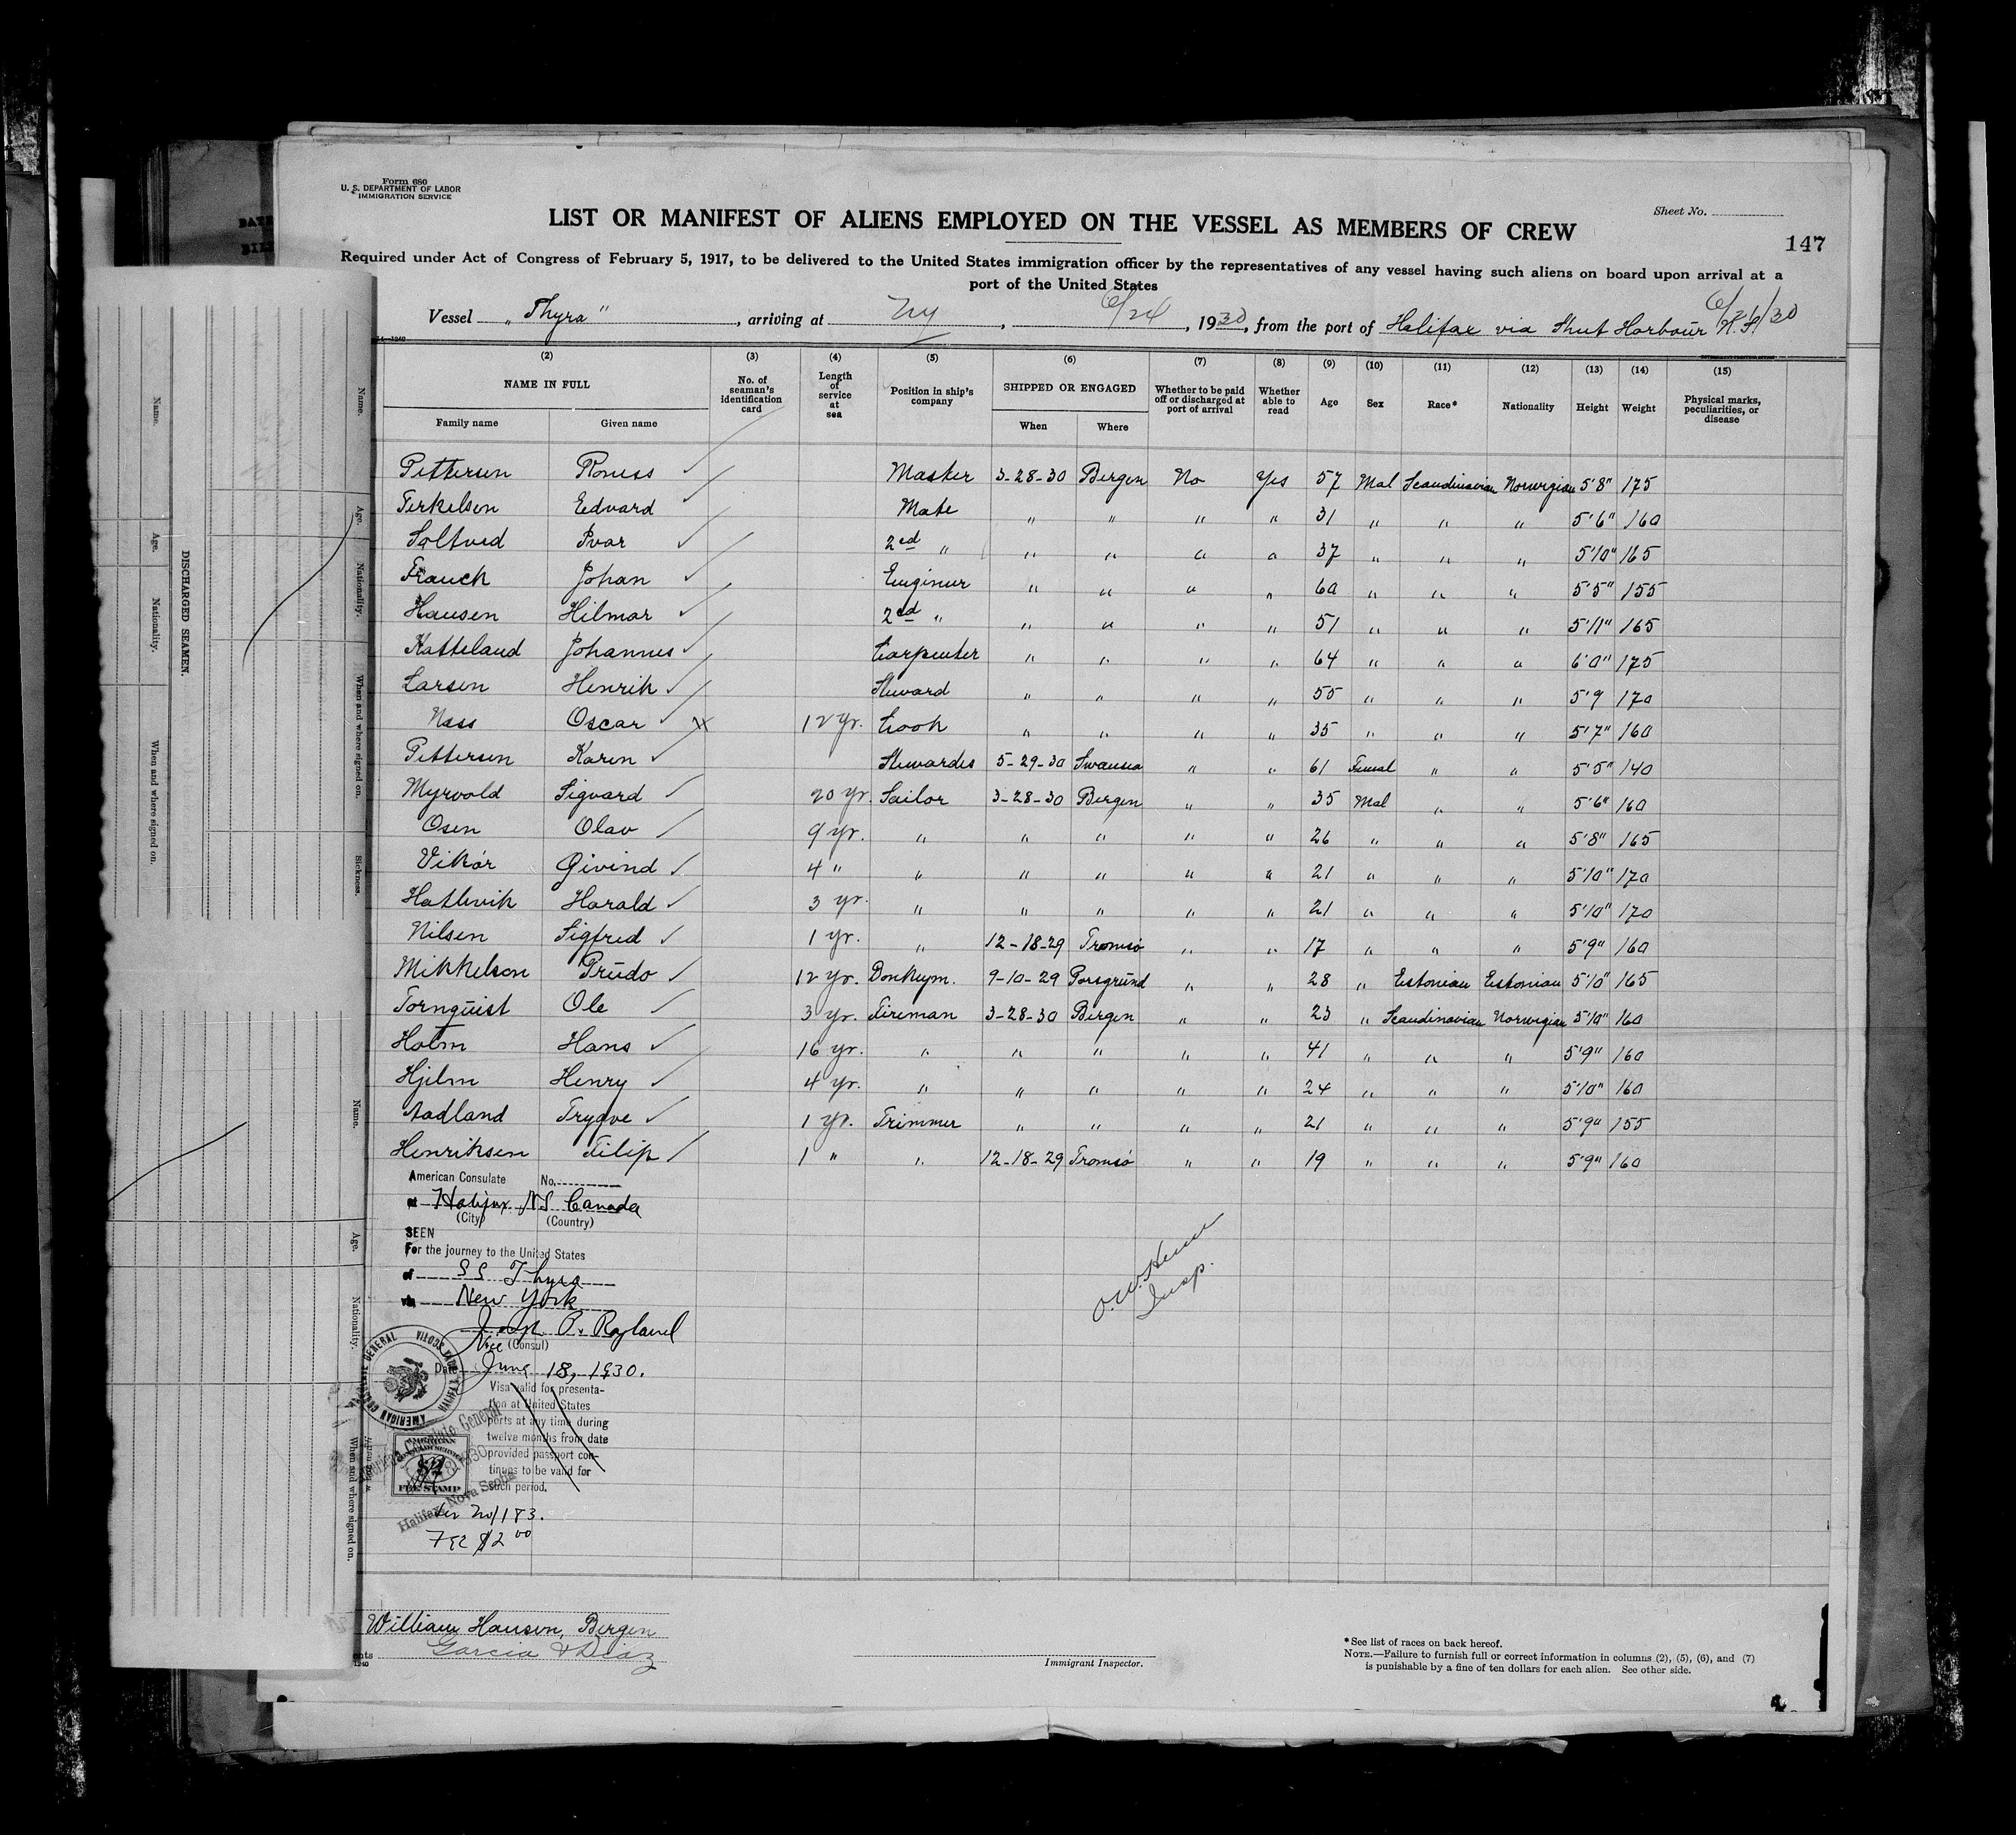 Form 680
U. S. DEPARTMENT OF LABOR
IMMIGRATION SERVICE
Sheet No.
LIST OR MANIFEST OF ALIENS EMPLOYED ON THE VESSEL AS MEMBERS OF CREW
147
Required under Act of Congress of February 5, 1917, to be delivered to the United States immigration officer by the representatives of any vessel having such aliens on board upon arrival at a
port of the United States
Vessel "Thyra", arriving at NY, 6/24, 1930, from the port of Halifax via Harbour 6/24/30
(2) (3) (4) (5) (6) (7) (8) (9) (10) (11) (12) (13) (14) (15)
NAME IN FULL No. of seaman's identification card Length of service at sea Position in ship's company SHIPPED OR ENGAGED Whether to be paid off or discharged at port of arrival Whether able to read Age Sex Race* Nationality Height Weight Physical marks, peculiarities, or disease
Family name Given name When Where
Pettersen Master 3-28-30 Bergen No Yes 57 Mal Scandinavian Norwegian 5'8" 175
Terkelsen Edvard Mate " " " " 31 " " " 5'6" 160
Soltved Ivar 2ed " " " " " 37 " " " 5'10" 165
Franck Johan Engineer " " " " 60 " " " 5'5" 155
Hansen Hilmar 2ed " " " " " 51 " " " 5'11" 165
Katteland Johannes Carpenter " " " " 64 " " " 6'0" 175
Larsen Henrik Steward " " " " 55 " " " 5'9 170
Ness Oscar 12 yr. Cook " " " " 35 " " " 5'7" 160
Pettersen Karen Stewardes 5-29-30 Swansea " " 61 Femal " " 5'5" 140
Myrvold Sigvard 20 yr. Sailor 3-28-30 Bergen " " 35 Mal " " 5'6" 160
Osen Olav 9 yr. " " " " " 26 " " " 5'8" 165
Vikór Øivind 4 " " " " " " 21 " " " 5'10" 170
Hatlevik Harald 3 yr. " " " " " 21 " " " 5'10" 170
Nilsen Sigfred 1 yr. " 12-18-29 Tromsö " " 17 " " " 5'9" 160
Mikkelson Prudo 12 yr. Donkeym. 9-10-29 Porsgrund " " 28 " Estonian Estonian 5'10" 165
Tornquist Ole 3 yr. Fireman 3-28-30 Bergen " " 23 " Scandinavian Norwegian 5'10" 160
Holm Hans 16 yr. " " " " " 41 " " " 5'9" 160
Hjelm Henry 4 yr. " " " " " 24 " " " 5'10" 160
Aadland Trygve 1 yr. Trimmer " " " " 21 " " " 5'9" 155
Henriksen Filip 1 " " 12-18-29 Tromsö " " 19 " " " 5'9" 160
American Consulate No.
at Halifax N.S. Canada
(City) (Country)
SEEN
For the journey to the United States
of SS Thyra
via New York
Vice (Consul)
Date June 18, 1930.
Visa valid for presenta-
tion at United States
ports at any time during
twelve months from date
provided passport con-
tinues to be valid for
such period.
American Consulate General
Halifax, Nova Scotia
AMERICAN CONSULATE GENERAL HALIFAX, NOVA SCOTIA
$2
FEE STAMP
183.
Fee $2 00
O.W.
Insp.
William Hansen, Bergen
Garcia & Diaz
1240
Immigrant Inspector.
* See list of races on back hereof.
NOTE.—Failure to furnish full or correct information in columns (2), (5), (6), and (7)
is punishable by a fine of ten dollars for each alien. See other side.
DISCHARGED SEAMEN.
Name.
Age.
Nationality.
When and where signed on.
Name.
Age.
Nationality.
When and where signed on.
Sickness.
Name.
Age.
Nationality.
When and where signed on.